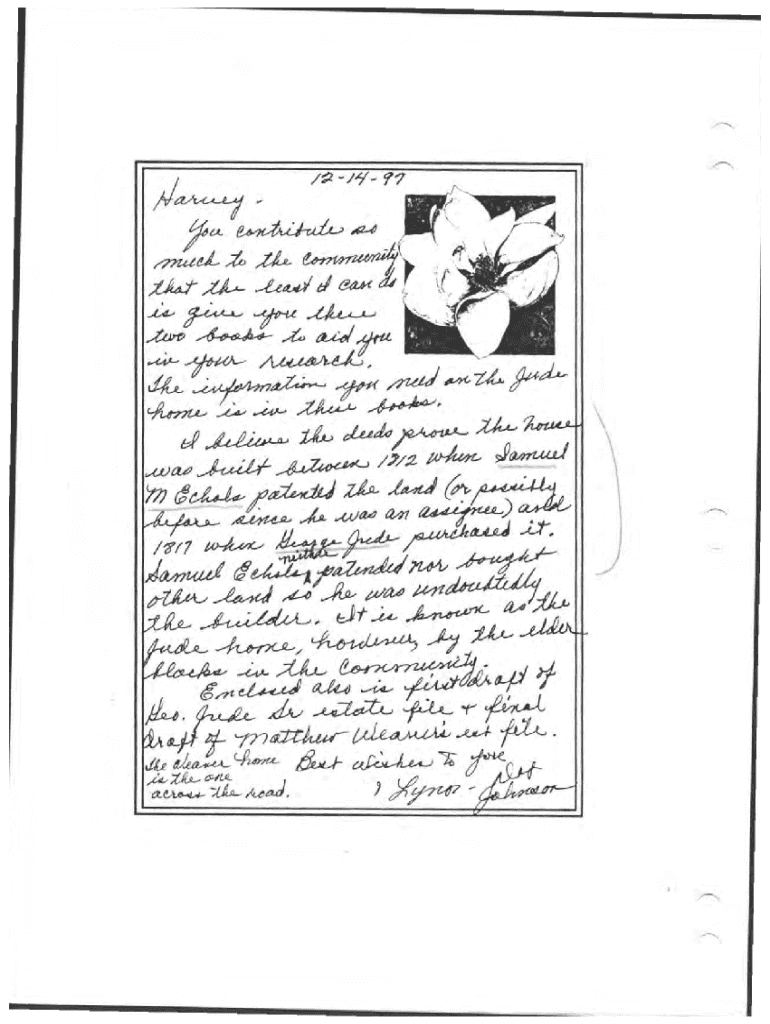 12-14-97
Harvey -
You contribute so
much to the community
that the least I can do
is give you these
two books to aid you
in your research.
The information you need on the Jude
home is in these books.
I believe the deeds prove the house
was built between 1812 when Samuel
M Echols patented the land (or possibly
before since he was an assignee) and
1817 when George Jude purchased it.
Samuel Echols neither patended nor bought
other land so he was undoubtedly
the builder. It is known as the
Jude home, however, by the elder
blacks in the community.
Enclosed also is first draft of
Geo. Jude Sr estate file + final
draft of Matthew Weaver's est file.
The Weaver home Best wishes to you
is the one
across the road. Lynor - Dot
Johnson